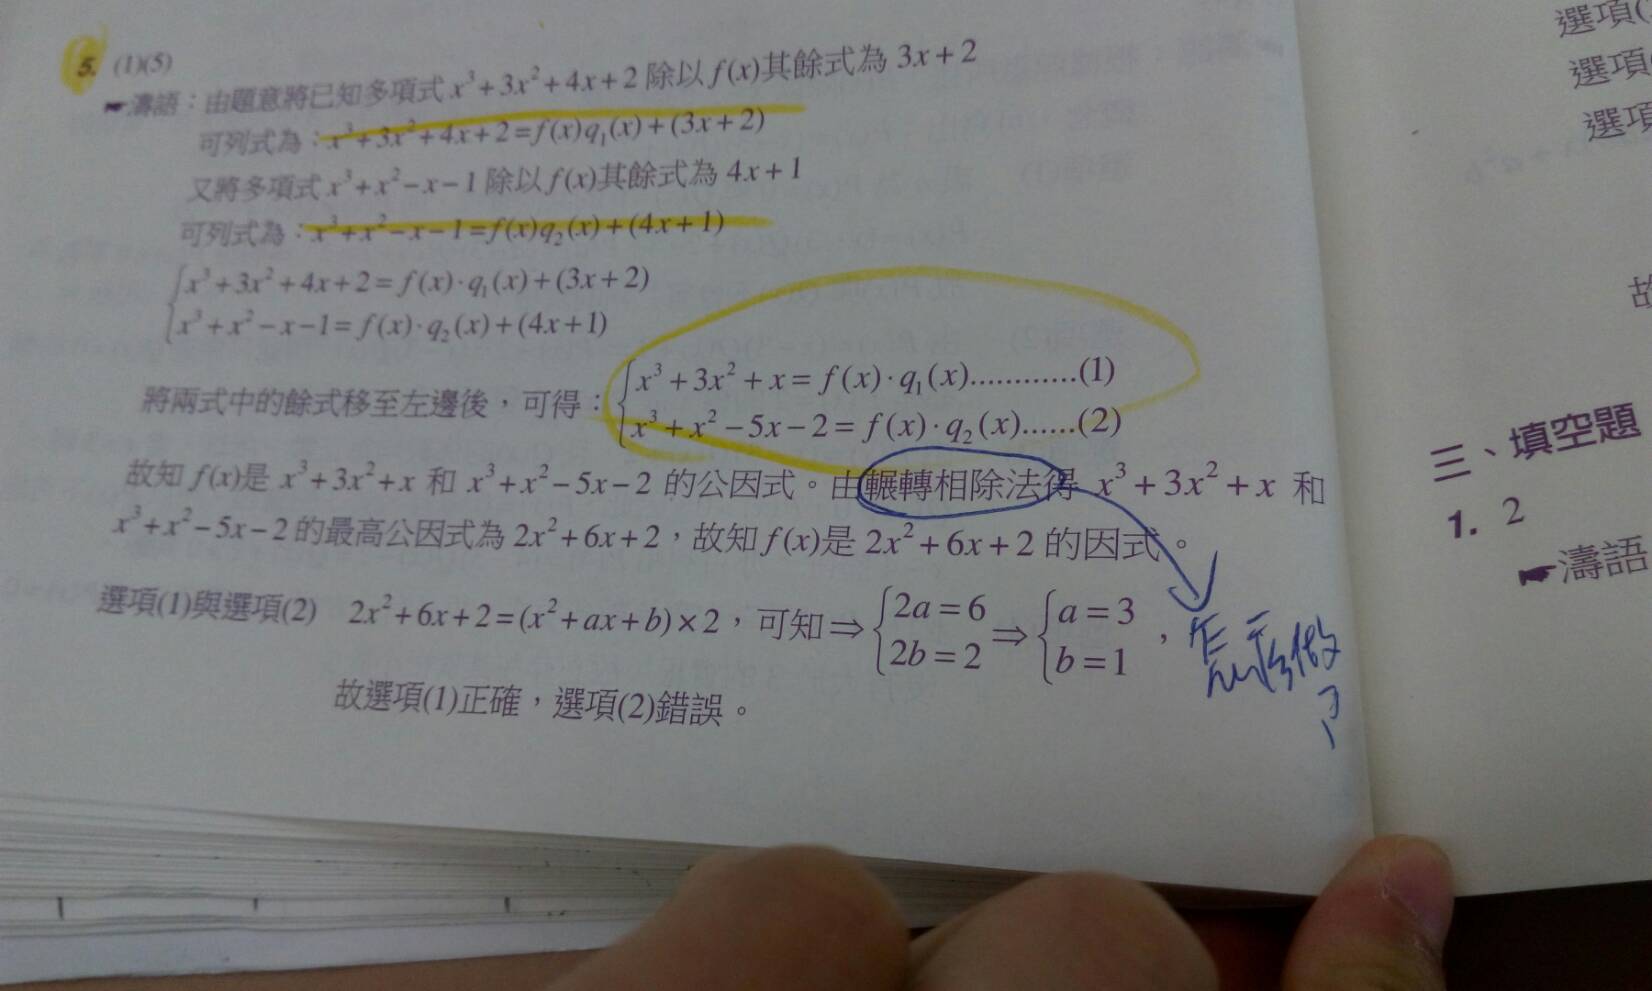 5. (1)(5)
☛濤語：由題意將已知多項式 x³+3x²+4x+2 除以 f(x)其餘式為 3x+2
可列式為：x³+3x²+4x+2=f(x)q₁(x)+(3x+2)
又將多項式 x³+x²−x−1 除以 f(x)其餘式為 4x+1
可列式為：x³+x²−x−1=f(x)q₂(x)+(4x+1)
x³+3x²+4x+2=f(x)·q₁(x)+(3x+2)
x³+x²−x−1=f(x)·q₂(x)+(4x+1)
將兩式中的餘式移至左邊後，可得：
x³+3x²+x=f(x)·q₁(x)............(1)
x³+x²−5x−2=f(x)·q₂(x)......(2)
故知 f(x)是 x³+3x²+x 和 x³+x²−5x−2 的公因式。由輾轉相除法得 x³+3x²+x 和
x³+x²−5x−2 的最高公因式為 2x²+6x+2，故知 f(x)是 2x²+6x+2 的因式。
選項(1)與選項(2) 2x²+6x+2=(x²+ax+b)×2，可知⇒{2a=6 2b=2 ⇒{a=3 b=1，
故選項(1)正確，選項(2)錯誤。
怎麼做?
選項(
選項(
選項
故
三、填空題
1. 2
☛濤語